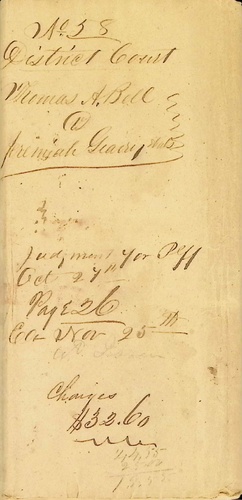 No 58
District Court
Thomas A. Bell
vs
Jeremiah Geary
Judgment for Plff
Oct 27th
Page 26
Nov 25th
Charges
$32.60